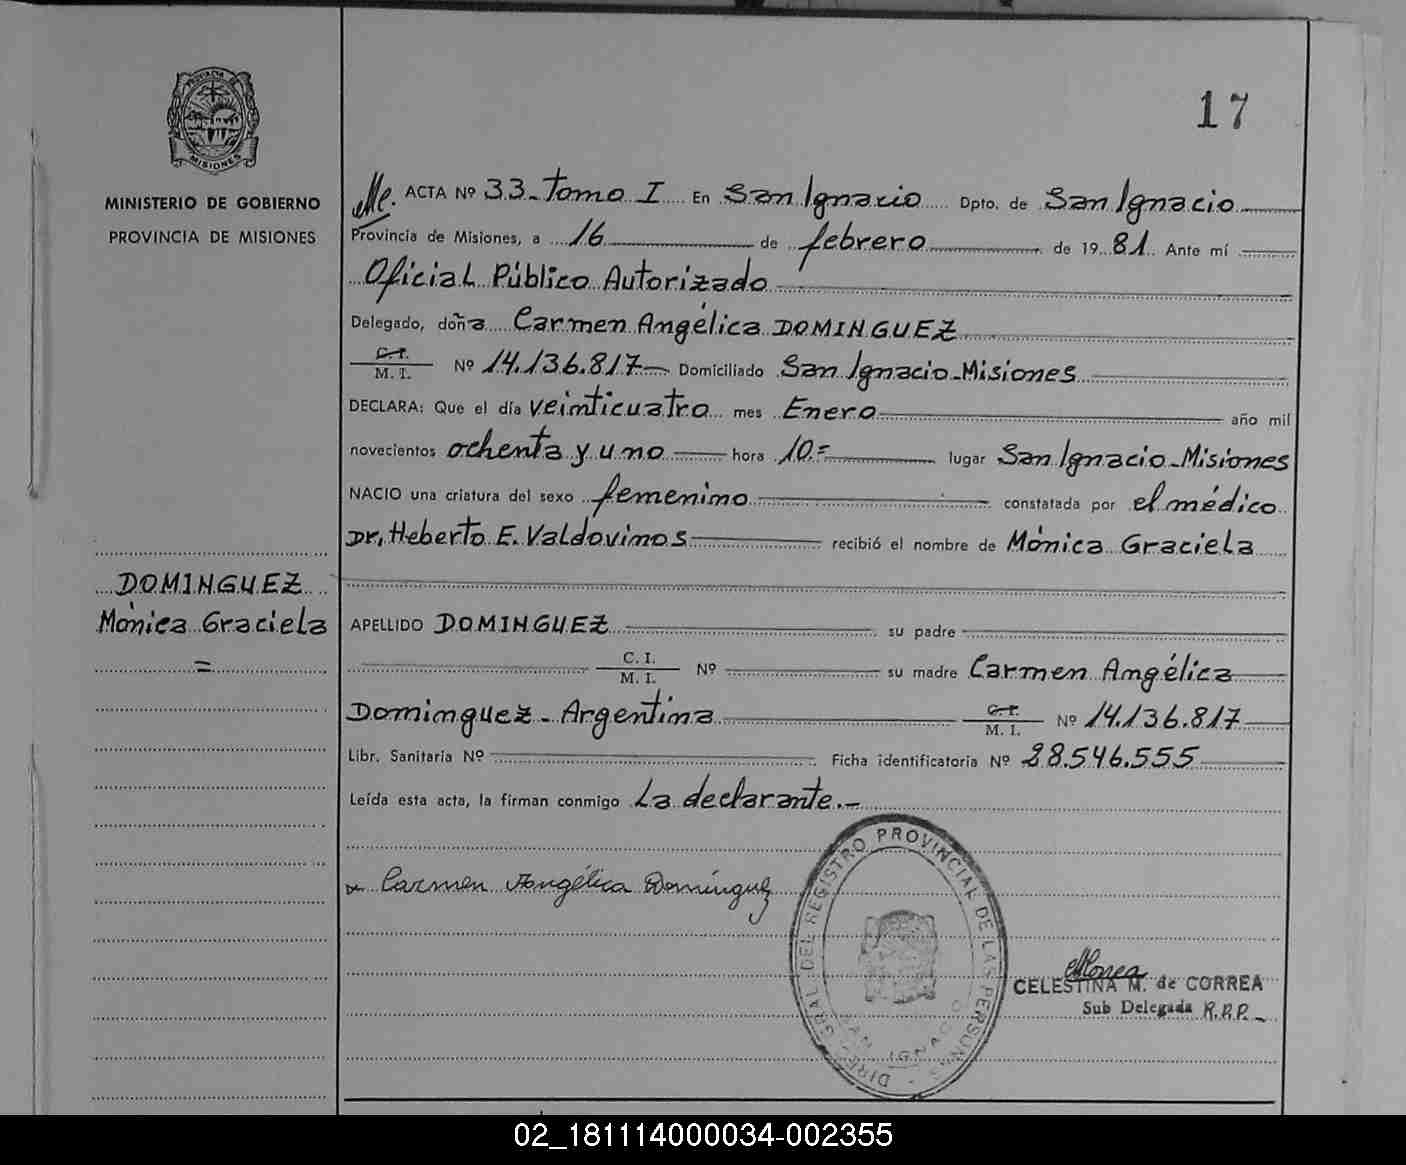 17
PROVINCIA DE
MISIONES
MINISTERIO DE GOBIERNO
PROVINCIA DE MISIONES
ACTA Nº 33-Tomo I En San Ignacio Dpto. de San Ignacio
Provincia de Misiones, a 16 de febrero de 1981. Ante mí
Oficial Público Autorizado
Delegado, doña Carmen Angélica DOMINGUEZ
C.I.
M. I. Nº 14.136.817 Domiciliado San Ignacio-Misiones
DECLARA: Que el día veinticuatro mes Enero año mil
novecientos ochenta y uno hora 10.= lugar San Ignacio-Misiones
NACIO una criatura del sexo femenino constatada por el médico
Dr. Heberto E. Valdovinos recibió el nombre de Mónica Graciela
DOMINGUEZ
Mónica Graciela
=
APELLIDO DOMINGUEZ su padre
C. I.
M. I. Nº su madre Carmen Angélica
Dominguez - Argentina C.I.
M. I. Nº 14.136.817
Libr. Sanitaria Nº Ficha identificatoria Nº 28.546.555
Leída esta acta, la firman conmigo La declarante.-
Carmen Angélica Domínguez
DIREC. GRAL. DEL REGISTRO PROVINCIAL DE LAS PERSONAS
SAN IGNACIO
CELESTINA M. de CORREA
Sub Delegada R.P.P.-
02_181114000034-002355